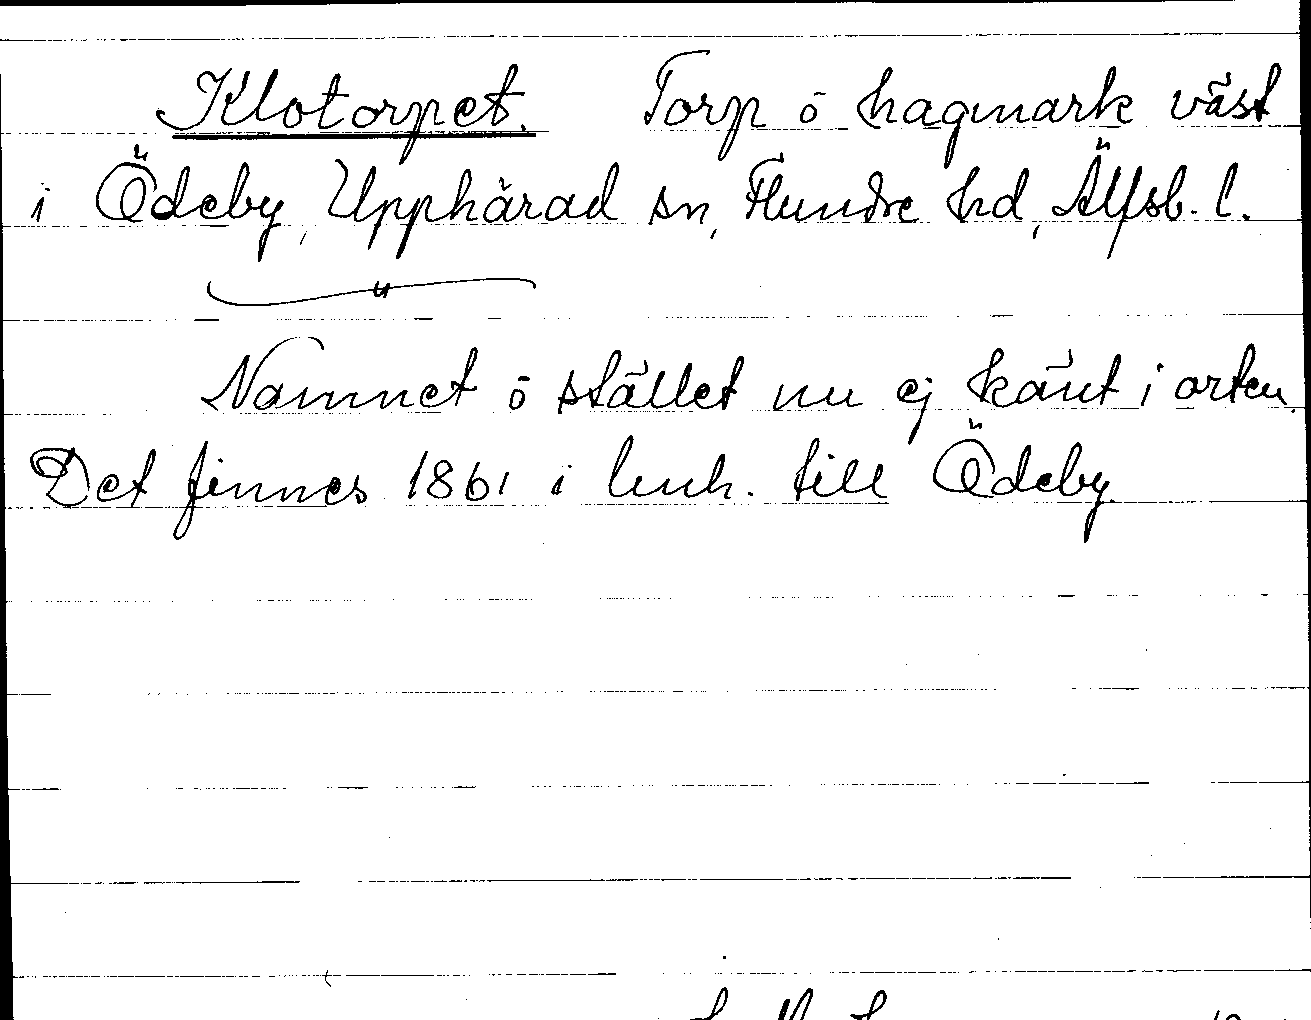 Klotorpet. Torp ō hagmark väst
i Ödeby, Upphärad sn, Flundre hd, Älfsb. l.
"
Namnet ō stället nu ej känt i orten.
Det finnes 1861 i till Ödeby.